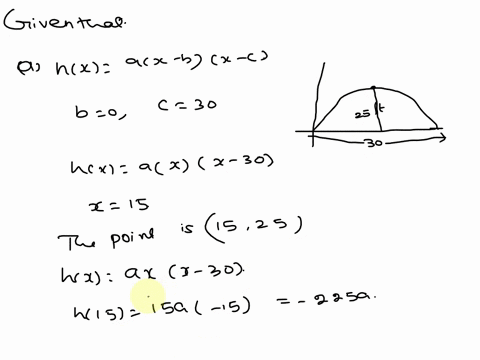 Given that.
a) h(x) = a(x-b) (x-c)
b=0, c=30
25 ft
30
h(x) = a(x) (x-30)
x=15
The point is (15, 25)
h(x) = ax (x-30).
h(15) = 15a (-15) = -225a.